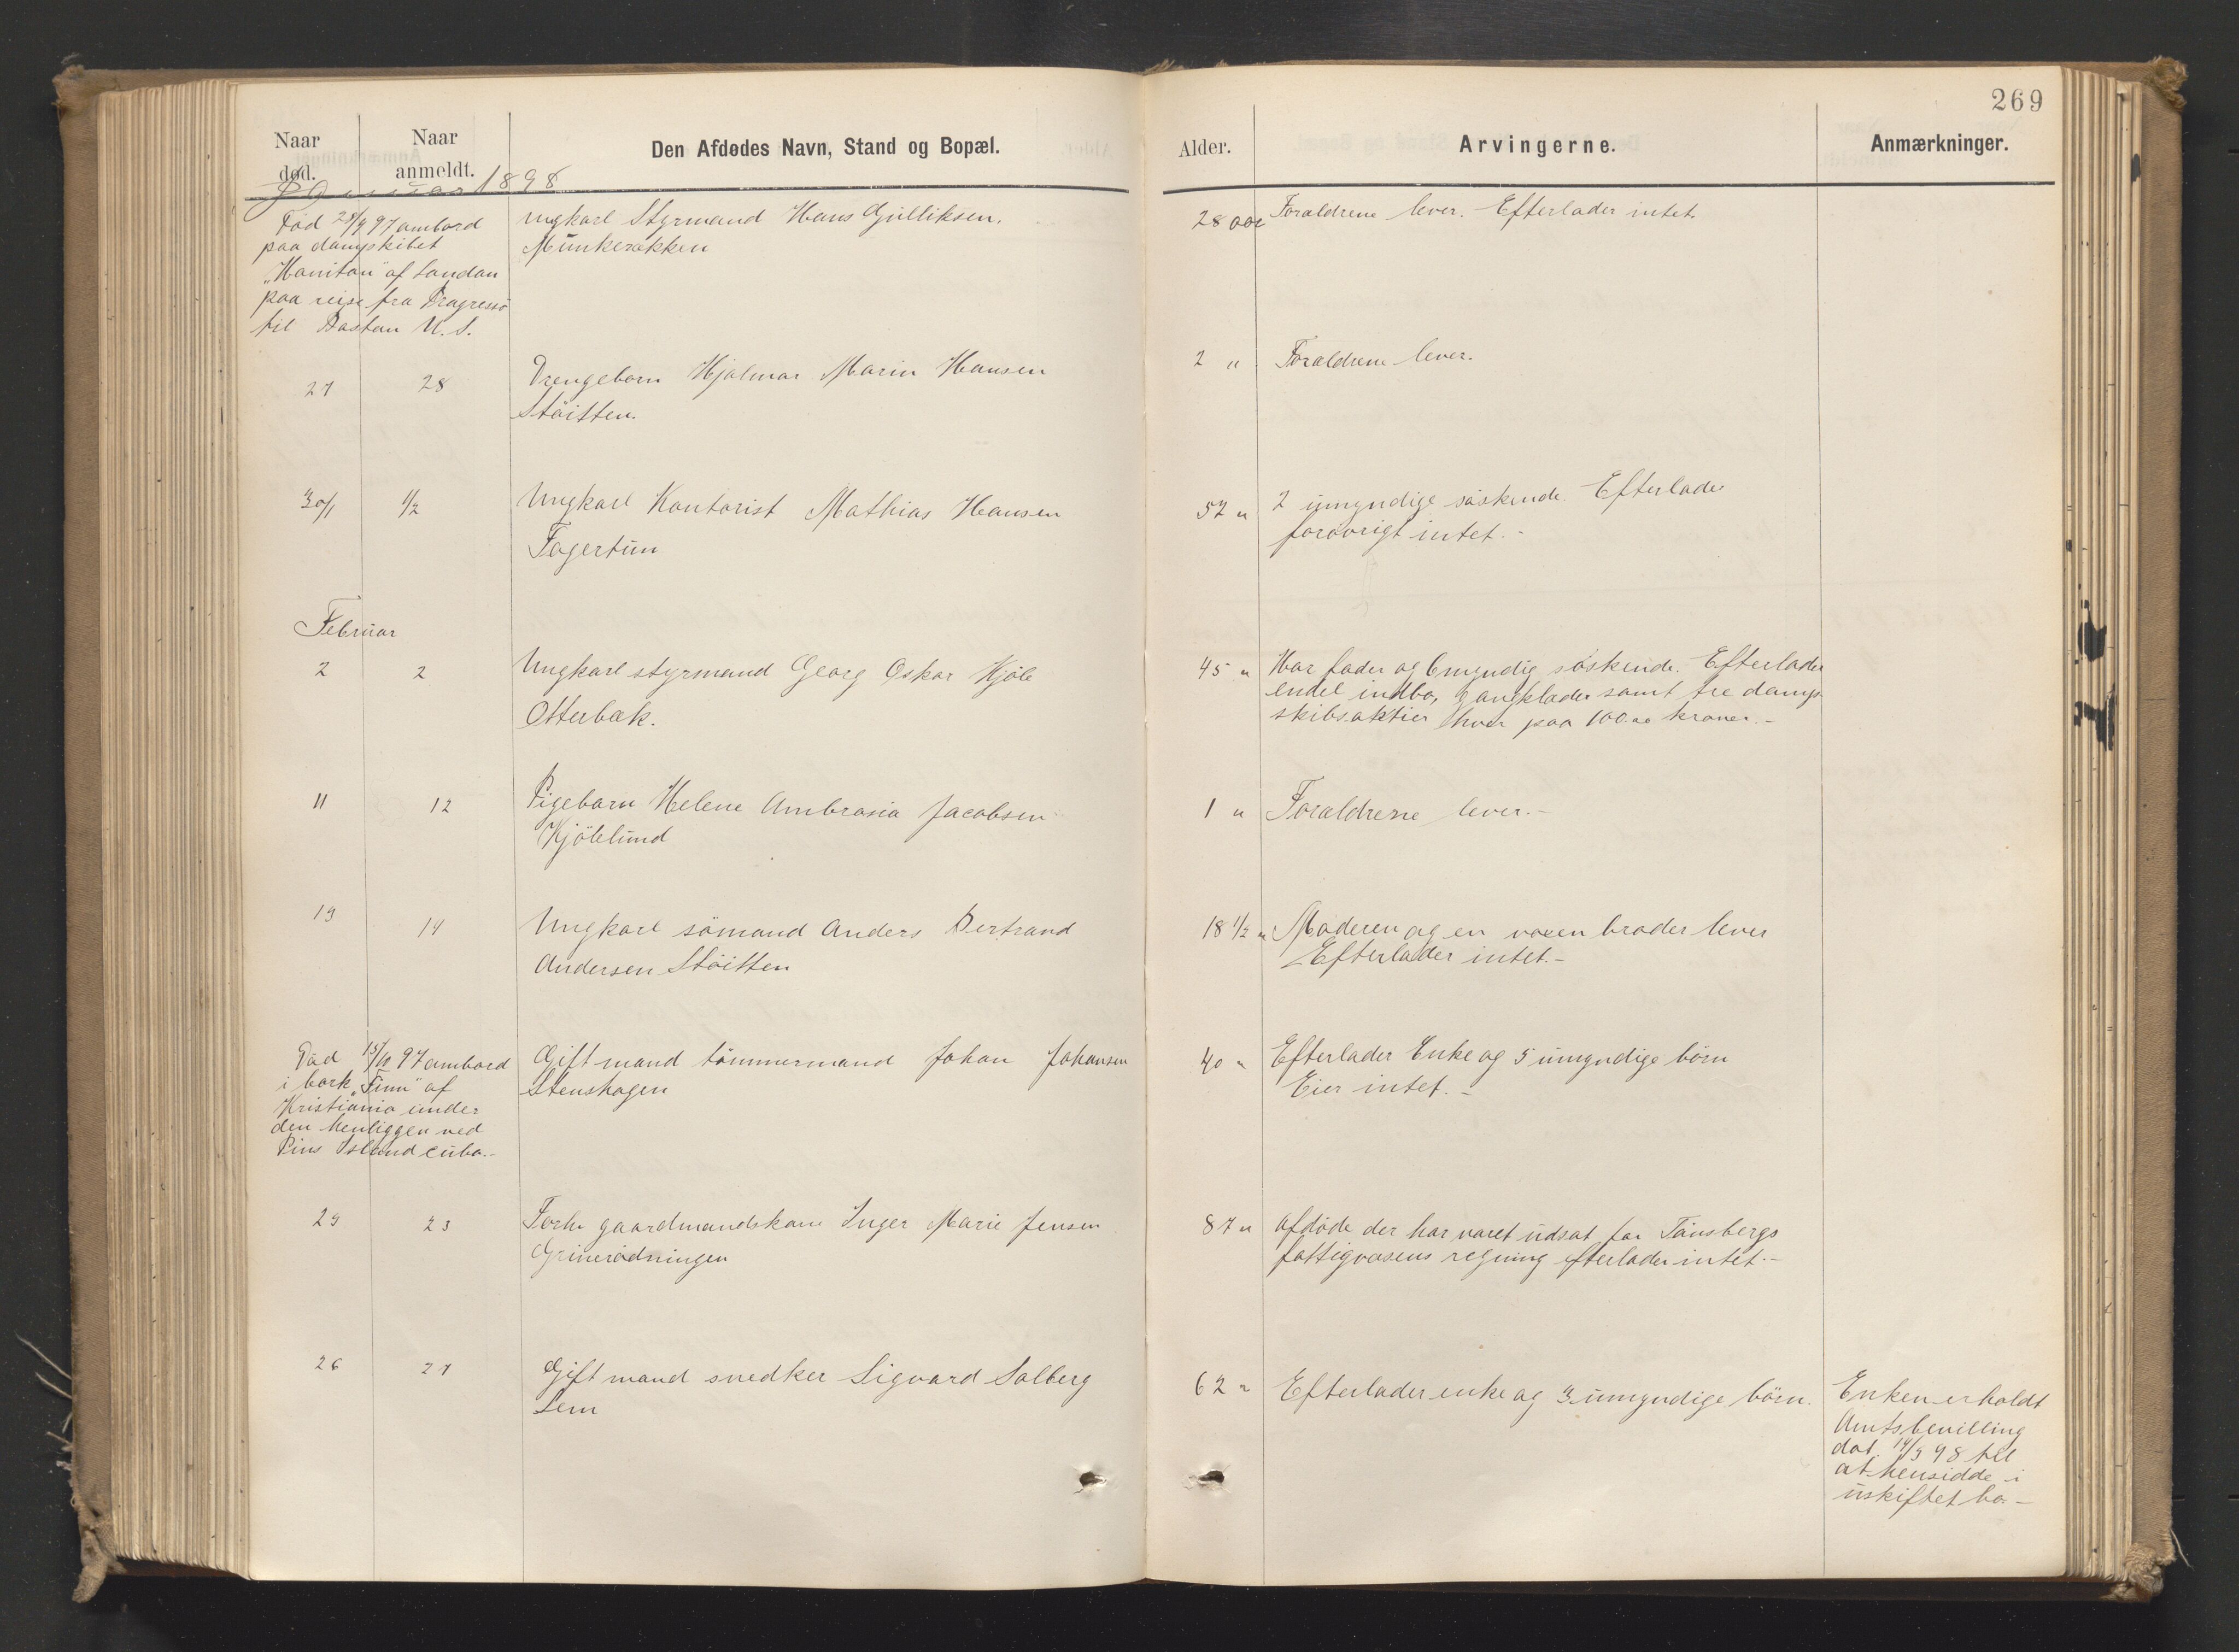 269
Naar
død.
Naar
anmeldt.
Den Afdødes Navn, Stand og Bopæl.
Alder.
Arvingerne.
Anmærkninger.
Januar 1898
Död 28/9 97 ombord
paa dampskibet
"Honiton" af London
paa reise fra Progresso
til Boston U. S.
Ungkarl Styrmand Hans Gulliksen.
Munkerekken
28 aar
Forældrene lever. Efterlader intet.
27
28
Drengebarn Hjalmar Marin Hansen
Stöitten.
2 "
Forældrene lever.
30/1
1/2
Ungkarl Kontorist Mathias Hansen
Fagertun
52 "
2 umyndige söskende. Efterlader
forövrigt intet. -
Februar
2
2
Ungkarl styrmand Georg Oskar Hjöle
Otterbæk.
45 "
Har fader og 6 myndig söskende. Efterlader
endel indbo, gangklæder samt tre damp-
skibsaktier hver paa 100.00 kroner. -
11
12
Pigebarn Helene Ambrosia Jacobsen
Kjölelund
1 "
Forældrene lever. -
13
14
Ungkarl sömand Anders Bertrand
Andersen Stöitten
18 1/2 "
Moderen og en voxen broder lever
Efterlader intet. -
Död 15/10 97 ombord
i bark "Finn" af
Kristiania under
den henliggen ved
Pins Island Cuba. -
Gift mand tömmermand Johan Johansen
Stenshagen
40 "
Efterlader Enke og 5 umyndige börn
Eier intet. -
23
23
Forh. gaardmandskone Inger Marie Jensen
Grinerödningen
87 "
Afdöde der har været udsat for Tönsbergs
fattigvæsens regning efterlader intet. -
26
27
Gift mand snedker Sigvard Solberg
Sem
62 "
Efterlader enke og 3 umyndige börn.
Enken erholdt
Amtsbevilling
dat. 14/3 98 til
at hensidde i
uskiftet bo. -